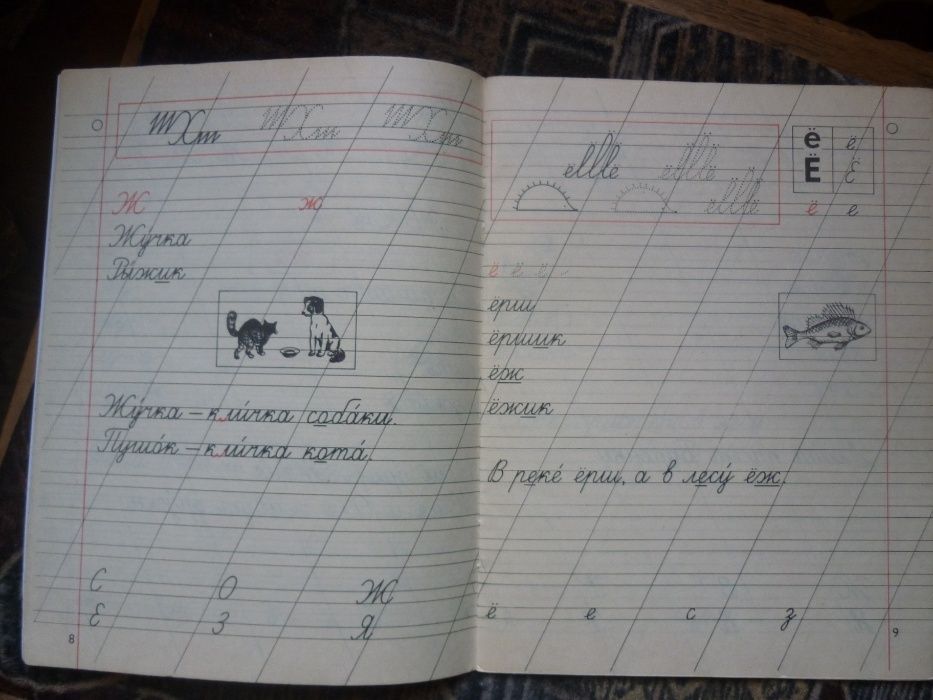 Ж ж
Жу́чка
Ры́жик
Жу́чка – кли́чка соба́ки.
Пушо́к – кли́чка кота́.
С О Ж
Е З Я
8
ё ё
Ё Ё
ё е
ё ё ё
ёрш
ёршик
ёж
ёжик
В реке́ ёрш, а в лесу́ ёж.
ё е с з
9